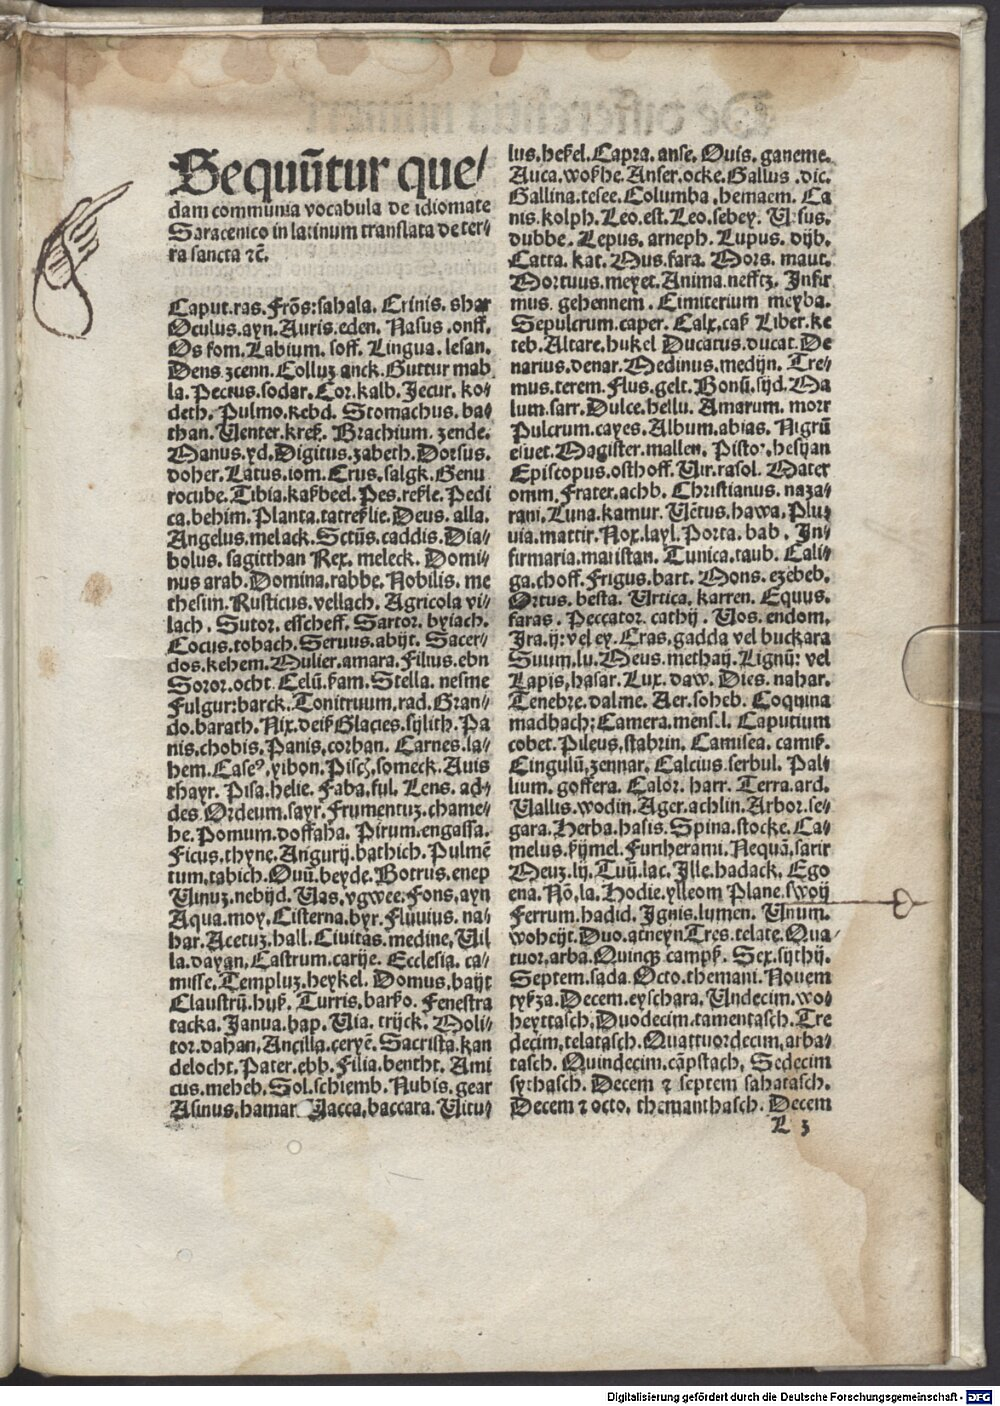 Sequūtur que/
dam communia vocabula de idiomate
Saracenico in latinum translata de ter/
ra sancta ⁊c̄.
Caput.ras.Frōs:sahala. Crinis. shar
Oculus.ayn.Auris.eden. Nasus .onff.
Os fom.Labium. soff. Lingua. lesan.
Dens zcenn.Colluz anck.Guttur mab
la. Pectus.sodar. Cor.kalb. Jecur. ko/
deth. Pulmo.kebd. Stomachus. ba/
than. Uenter.kreß. Brachium. zende.
Manus.yd.Digitus.zabeth.Dorsus.
doher.Latus.iom.Crus,salgk.Genu
rocube.Tibia.kakbeel.Pes.rekle.Pedi
ca.behim.Planta.tatreklie.Deus. alla.
Angelus.melack.Sctūs.caddis.Dia/
bolus. sagitthan Rex. meleck. Domi/
nus arab.Domina.rabbe.Nobilis. me
thesim.Rusticus.vellach. Agricola vi/
lach . Sutor. esscheff. Sartor. byiach.
Cocus.tobach.Seruus.abijt. Sacer/
dos.kehem.Mulier.amara.Filius.ebn
Soror.ocht Celū.kam.Stella. nesme
Fulgur:barck. Tonitruum.rad.Gran/
do.barath.Nix.deiß Glacies.sylith.Pa
nis.chobis.Panis,corban. Carnes.la/
hem.Caseꝰ.yibon.Pisc̄.someck.Auis
thayr. Pisa.helie. Faba.ful. Lens. ad/
des.Ordeum.sayr.Frumentuz.chame/
he.Pomum.doffaha. Pirum.engassa.
Ficus.thyne.Angurij.bathich.Pulmē
tum.tabich.Ouū.beyde.Botrus.enep
Uinuz.nebijd.Uas.vgwee.Fons.ayn
Aqua.moy.Cisterna.byr.Fluuius. na/
har.Acetuz.hall.Ciuitas.medine,Uil
la.dayan.Castrum.carye. Ecclesia. ca/
misse.Templuz.heykel. Domus.bayt
Claustrū.huß. Turris.barko. Fenestra
tacka. Janua.bap. Uia. trijck. Moli/
tor.dahan.Ancilla.ceryē. Sacrista.kan
delocht. Pater.ebb. Filia.bentht. Ami
cus.meheb. Sol.schiemb. Nubis. gear
Asinus.hamar. Uacca,baccara. Uitu/
lus.hekel.Capra. anse. Ouis. ganeme.
Auca.wokhe.Anser.ocke.Gallus .dic.
Gallina.tesee.Columba .hemaem. Ca
nis.kolph.Leo.est.Leo.sebey. Ursus.
dubbe. Lepus. arneph. Lupus. dijb.
Catta. kat. Mus.fara. Mors. maut.
Mortuus.meyet.Anima.nefftz. Infir
mus. gehennem. Cimiterium meyba.
Sepulcrum.caper. Calx.caß Liber.ke
teb.Altare.hukel Ducatus.ducat.De
narius.denar.Medinus.medijn. Tre/
mus.terem. Flus.gelt.Bonū.sijd.Ma
lum.sarr.Dulce.hellu. Amarum. morr
Pulcrum.cayes.Album.abias. Nigrū
esuet.Magister.mallen. Pistor.hesyan
Episcopus.osthoff.Uir.rasol. Mater
omm.Frater.achb. Christianus. naza/
rani. Luna.kamur. Uētus.hawa.Plu/
uia.mattir.Nox.layl.Porta. bab. In/
firmaria.maristan. Tunica.taub. Cali/
ga.choff.Frigus.bart. Mons. ezebeb.
Ortus. besta. Urtica. karren. Equus.
faras. Peccator. cathij. Uos. endom.
Ira.ij: vel ey. Cras.gadda vel buckara
Suum.lu.Meus.methaij.Lignū: vel
Lapis,hasar. Lux. daw. Dies. nahar.
Tenebre.dalme. Aer.soheb. Coquina
madbach: Camera.mens.l. Caputium
cobet.Pileus.stabrin. Camisea. camiß.
Cingulū.zennar. Calcius.serbul. Pal/
lium. goffera. Calor. harr. Terra.ard.
Uallus.wodin.Ager.achlin.Arbor.se/
gara.Herba.hasis.Spina.stocke. Ca/
melus.kijmel.Furiherami.Nequā.sarir
Meuz.lij.Tuū.lac. Ille.hadack. Ego
ena. Nō.la. Hodie.ylleom Plane.swoij
Ferrum.hadid. Ignis.lumen. Unum.
woheijt.Duo.atneyn Tres.telate.Qua/
tuor.arba.Quinqȝ campß. Sex.sijthij.
Septem.sada Octo.themani. Nouem
tykza.Decem.eyschara. Undecim.wo/
heyttasch.Duodecim.tamentasch.Tre
decim,telatasch.Quattuordecim.arba/
tasch. Quindecim.cāpstach. Sedecim
sythasch. Decem ⁊ septem sahatasch.
Decem ⁊ octo. themanthasch. Decem
L 3
Digitalisierung gefördert durch die Deutsche Forschungsgemeinschaft - DFG